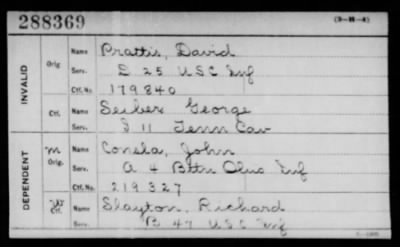 288369 (3-H-A)
INVALID Orig Name Prattis, David
Serv. D 25 U S C Inf
Ctf. No. 179840
Ctf. Name Seiber George
Serv. I 11 Tenn Cav
DEPENDENT M Orig. Name John
Serv. A 4 Inf
Ctf. No. 219327
Ctf. Name Slayton, Richard
Serv. B 47 U S C Inf